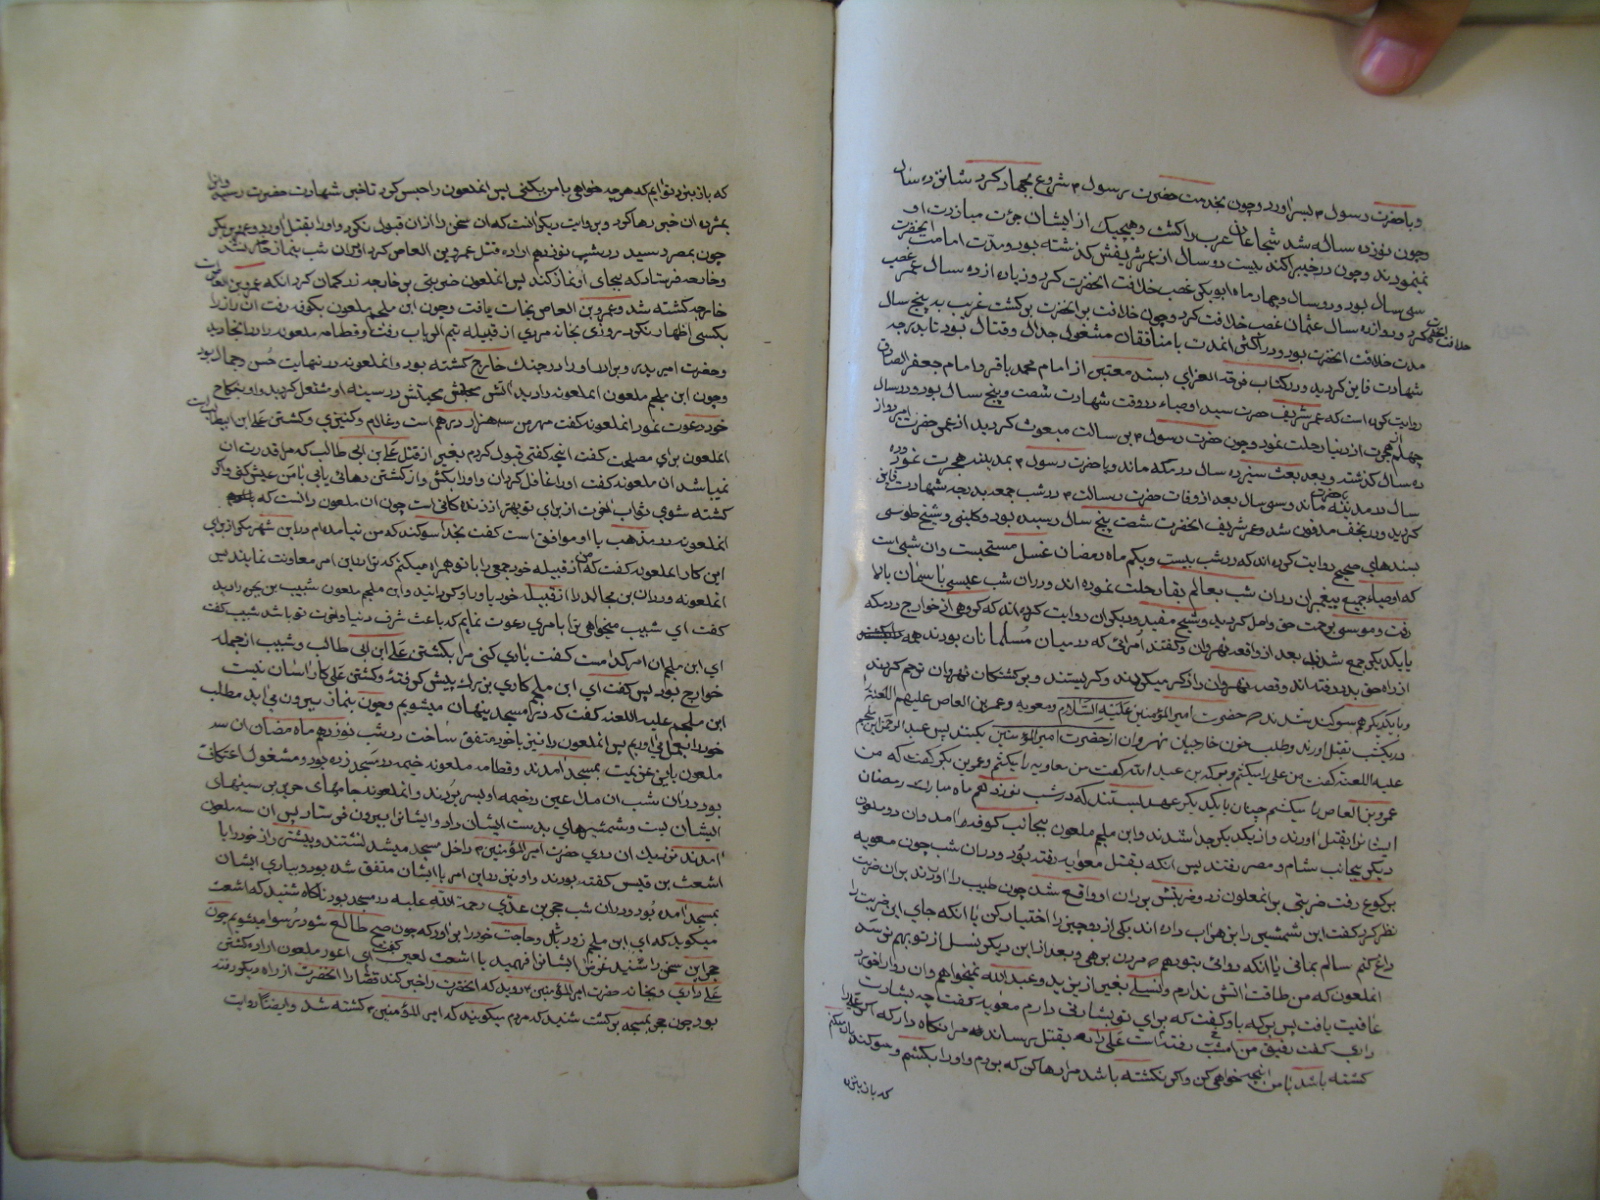 و با حضرت رسول ۴ بسر آورد و چون بخدمت حضرت رسول ۴ شروع بجهاد کرد شانزده سال
و چون نوزده ساله شد شجاعان عرب را کشت و هیچیک از ایشان جرئت مبارزت او
نمیبودند و چون در خیبر را کند بیست دو سال از عمر شریفش گذشته بود و مدت امامت آنحضرت
سی سال بود و دو سال و چهار ماه ابوبکر غصب خلافت آنحضرت کرد و زیاده از ده سال عمر غصب
خلافت آنحضرت کرد و دوازده سال عثمان غصب خلافت کرد و چون خلافت بر آنحضرت برگشت قریب به پنج سال
مدت خلافت آنحضرت بود و در اکثر آنمدت با منافقان مشغول جدال و قتال بود تا بدرجه
شهادت فایز گردید و در کتاب فرقه الغرای بسند معتبر از امام محمد باقر و امام جعفر الصادق
روایت کرده است که عمر شریف حضرت سید اوصیاء در وقت شهادت شصت و پنج سال بود و در سال
چهلم هجرت از دنیا رحلت نمود و چون حضرت رسول ۴ برسالت مبعوث گردید از عمر حضرت امیر دوازده
سال گذشته و بعد بعثت سیزده سال در مکه ماند و با حضرت رسول ۴ بمدینه هجرت نمود و ده
سال در مدینه با حضرت ماند و سی سال بعد از وفات حضرت رسالت ۴ در شب جمعه بدرجه شهادت فایز
گردید و در نجف مدفون شد و عمر شریف آنحضرت شصت پنج سال رسیده بود و کلینی و شیخ طوسی
بسندهای صحیح روایت کرده اند که در شب بیست و یکم ماه رمضان غسل مستحبست و آن شبی است
که اوصیاء جمیع پیغمبران در آن شب بعالم بقا رحلت نموده اند و در آن شب عیسی با سمان بالا
رفت و موسی برحمت حق واصل گردید و شیخ مفید و دیگران روایت کرده اند که گروهی از خوارج در مکه
با یکدیگر جمع شدند بعد از واقعه نهروان و گفتند امرائی که در میان مسلمانان بودند همه
از راه حق بدر رفته اند و قصه نهروان را ذکر میکردند و گریستند و بر کشتگان نهروان ترحم کردند
و با یکدیگر هم سوگند شدند که حضرت امیر المؤمنین علیه السلام و معویه و عمر بن العاص علیهم اللعنه را
در یکشب بقتل آورند و طلب خون خارجیان نهروان از حضرت امیر المؤمنین بکنند پس عبد الرحمن ابن ملجم
علیه اللعنه گفت من علی را میکشم و برک بن عبد الله گفت من معاویه را میکشم و عمر بن بکر گفت که من
عمرو بن العاص را میکشم چنان با یکدیگر عهد بستند که در شب نوزدهم ماه مبارک رمضان
ایشانرا بقتل آورند و از یکدیگر جدا شدند و ابن ملجم ملعون بجانب کوفه آمد و آن دو ملعون
دیگر بجانب شام و مصر رفتند پس آنکه بقتل معاویه رفته بود در آن شب چون معویه
برکوع رفت ضربتی بر آنملعون زد و ضربتش بر ران او واقع شد چون طبیب را آوردند بر آن ضربت
نظر کرد گفت این شمشیر را بزهر آب داده اند یکی از دو چیز را اختیار کن یا آنکه جای این ضربت را
داغ کنم سالم بمانی یا آنکه دوائی بتو دهم که مردن برهی و بعد از این دیگر نسل از تو بهم نرسد
آنملعون گفت که من طاقت آتش ندارم و نسلی بغیر از یزید و عبد الله نمیخواهم و آن دوا را خورد
عافیت یافت پس برک باو گفت که برای تو بشارتی دارم معویه گفت چه بشارت
داری گفت رفیق من امشب رفته است علی را بقتل برساند مرا نگاه دار که اگر علی را
کشته باشد با من آنچه خواهی کن و اگر نکشته باشد مرا رها کن که بروم و او را بکشم و سوگند یاد میکنم
که باز بنزد
که باز بنزد تو آیم که هر چه خواهی با من بکنی پس آنملعون را حبس کرد تا خبر شهادت حضرت رسید و او را
بمژده آن خبر رها کرد و بروایت دیگر آنست که آن سخن را از آن قبول نکرد و او را بقتل آورد و عمر بن بکر
چون بمصر رسید در شب نوزدهم اراده قتل عمرو بن العاص کرد او در آن شب بنماز حاضر نشد
و خارجه فرستاد که بجای او نماز کند پس آنملعون ضربتی بر خارجه زد گمان کرد آنکه عمرو بن العاص است
خارجه کشته شد و عمرو بن العاص نجات یافت و چون ابن ملجم ملعون بکوفه رفت آن راز را
بکسی اظهار نکرد روزی بخانه مردی از قبیله تیم الرباب رفت و قطامه ملعونه را در آنجا دید
و حضرت امیر پدر و برادر او را در جنک خارج کشته بود و آنملعونه در نهایت حسن و جمال بود
و چون ابن ملجم ملعون آنملعونه را دید آتش محبتش در سینه او مشتعل گردید و او بنکاح
خود دعوت نمود آنملعونه گفت مهر من سه هزار درهم است و غلام و کنیزی و کشتن علی ابن ابیطالب است
آنملعون برای مصلحت گفت آنچه گفتی قبول کردم بغیر از قتل علی بن ابی طالب که مرا قدرت آن
نمیباشد آن ملعونه گفت او را غافل گردان و او را بکش و از کشتن رهائی یابی با من عیش کنی و اگر
کشته شوی ثواب آخرت از برای تو بهتر از زندگانی است چون آن ملعون دانست که
آنملعونه در مذهب با او موافق است گفت بخدا سوگند که من نیامده ام در این شهر مگر از برای
این کار آنملعونه گفت که من از قبیله خود جمعی را با تو همراه میکنم که ترا در این امر معاونت نمایند پس
آنملعونه وردان بن مجالد را از قبیله خود یاور او گردانید و ابن ملجم ملعون شبیب بن بجره را دید
گفت ای شبیب میخواهی ترا بامری دعوت نمایم که باعث شرف دنیا و آخرت تو باشد شبیب گفت
ای ابن ملجم آن امر کدامست گفت یاری کنی مرا بکشتن علی ابن ابی طالب و شبیب از جمله
خوارج بود پس گفت ای ابن ملجم کاری بزرک پیش گرفته و کشتن علی کار آسان نیست
ابن ملجم علیه اللعنه گفت که در مسجد پنهان میشویم و چون بنماز بیرون می آید مطلب
خود را بعمل می آوریم پس آنملعون را نیز با خود متفق ساخت در شب نوزدهم ماه رمضان آن سه
ملعون باین عزیمت بمسجد آمدند و قطامه ملعونه خیمه در مسجد زده بود و مشغول اعتکاف
بود در آن شب آن ملاعین در خیمه او بسر بردند و آنملعونه جامهای حریر بر سینهای
ایشان بست و شمشیرهای بدست ایشان داد و ایشانرا بیرون فرستاد پس آن سه ملعون
آمدند نزدیک آن دری حضرت امیر المؤمنین ۴ داخل مسجد میشد نشستند و پیشتر راز خود را با
اشعث بن قیس گفته بودند و او نیز در این امر با ایشان متفق شده بود و بیاری ایشان
بمسجد آمده بود و در آن شب حجر بن عدی رحمة الله علیه در مسجد بود ناگاه شنید که اشعث
میگوید که ای ابن ملجم زود باش و حاجت خود را برآور که چون صبح طالع شود رسوا میشوم چون
حجر این سخن را شنید غرض ایشانرا فهمید با اشعث لعین گفت ای اعور ملعون اراده کشتن
علی داری و بخانه حضرت امیر المؤمنین ۴ دوید که آنحضرت را خبر کند قضا را آنحضرت از راه دیگر رفته
بود چون حجر بمسجد برگشت شنید که مردم میگویند که امیر المؤمنین ۴ کشته شد و ایضا روایت